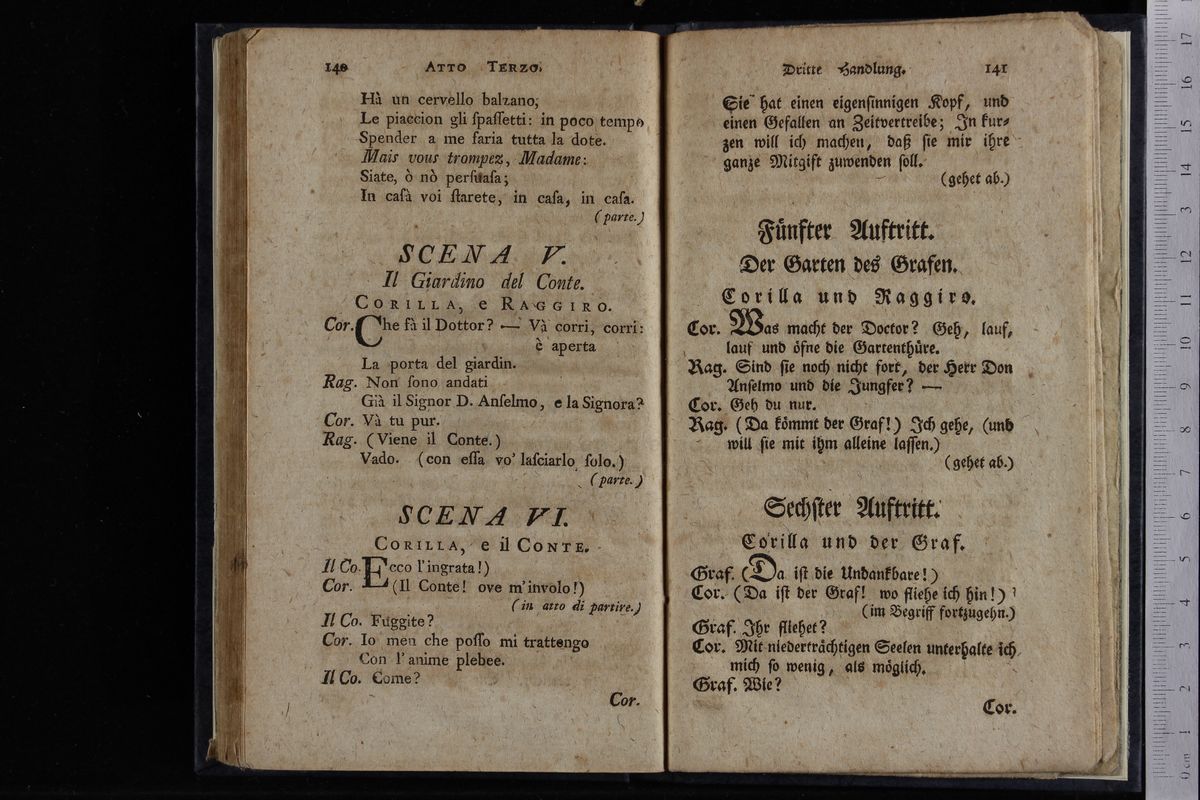 140 ATTO TERZO.
Hà un cervello balzano,
Le piaccion gli ſpaſſetti: in poco tempo
Spender a me faria tutta la dote.
Mais vous trompez, Madame:
Siate, ò nò perſuaſa;
In caſà voi ſtarete, in caſa, in caſa.
(parte.)
SCENA V.
Il Giardino del Conte.
CORILLA, e RAGGIRO.
Cor. Che fà il Dottor? — Và corri, corri:
è aperta
La porta del giardin.
Rag. Non ſono andati
Già il Signor D. Anſelmo, e la Signora?
Cor. Và tu pur.
Rag. (Viene il Conte.)
Vado. (con eſſa vo' laſciarlo ſolo.)
(parte.)
SCENA VI.
CORILLA, e il CONTE.
Il Co. Ecco l'ingrata!)
Cor. (Il Conte! ove m'involo!)
(in atto di partire.)
Il Co. Fuggite?
Cor. Io men che poſſo mi trattengo
Con l'anime plebee.
Il Co. Come?
Cor.
Dritte Handlung. 141
Sie hat einen eigenſinnigen Kopf, und
einen Gefallen an Zeitvertreibe; In kur⸗
zen will ich machen, daß ſie mir ihre
ganze Mitgift zuwenden ſoll.
(gehet ab.)
Fünfter Auftritt.
Der Garten des Grafen.
Corilla und Raggiro.
Cor. Was macht der Doctor? Geh, lauf,
lauf und öfne die Gartenthüre.
Rag. Sind ſie noch nicht fort, der Herr Don
Anſelmo und die Jungfer? —
Cor. Geh du nur.
Rag. (Da kömmt der Graf!) Ich gehe, (und
will ſie mit ihm alleine laſſen.)
(gehet ab.)
Sechster Auftritt.
Corilla und der Graf.
Graf. (Da iſt die Undankbare!)
Cor. (Da iſt der Graf! wo fliehe ich hin!)
(im Begriff fortzugehn.)
Graf. Ihr fliehet?
Cor. Mit niederträchtigen Seelen unterhalte ich
mich ſo wenig, als möglich.
Graf. Wie?
Cor.